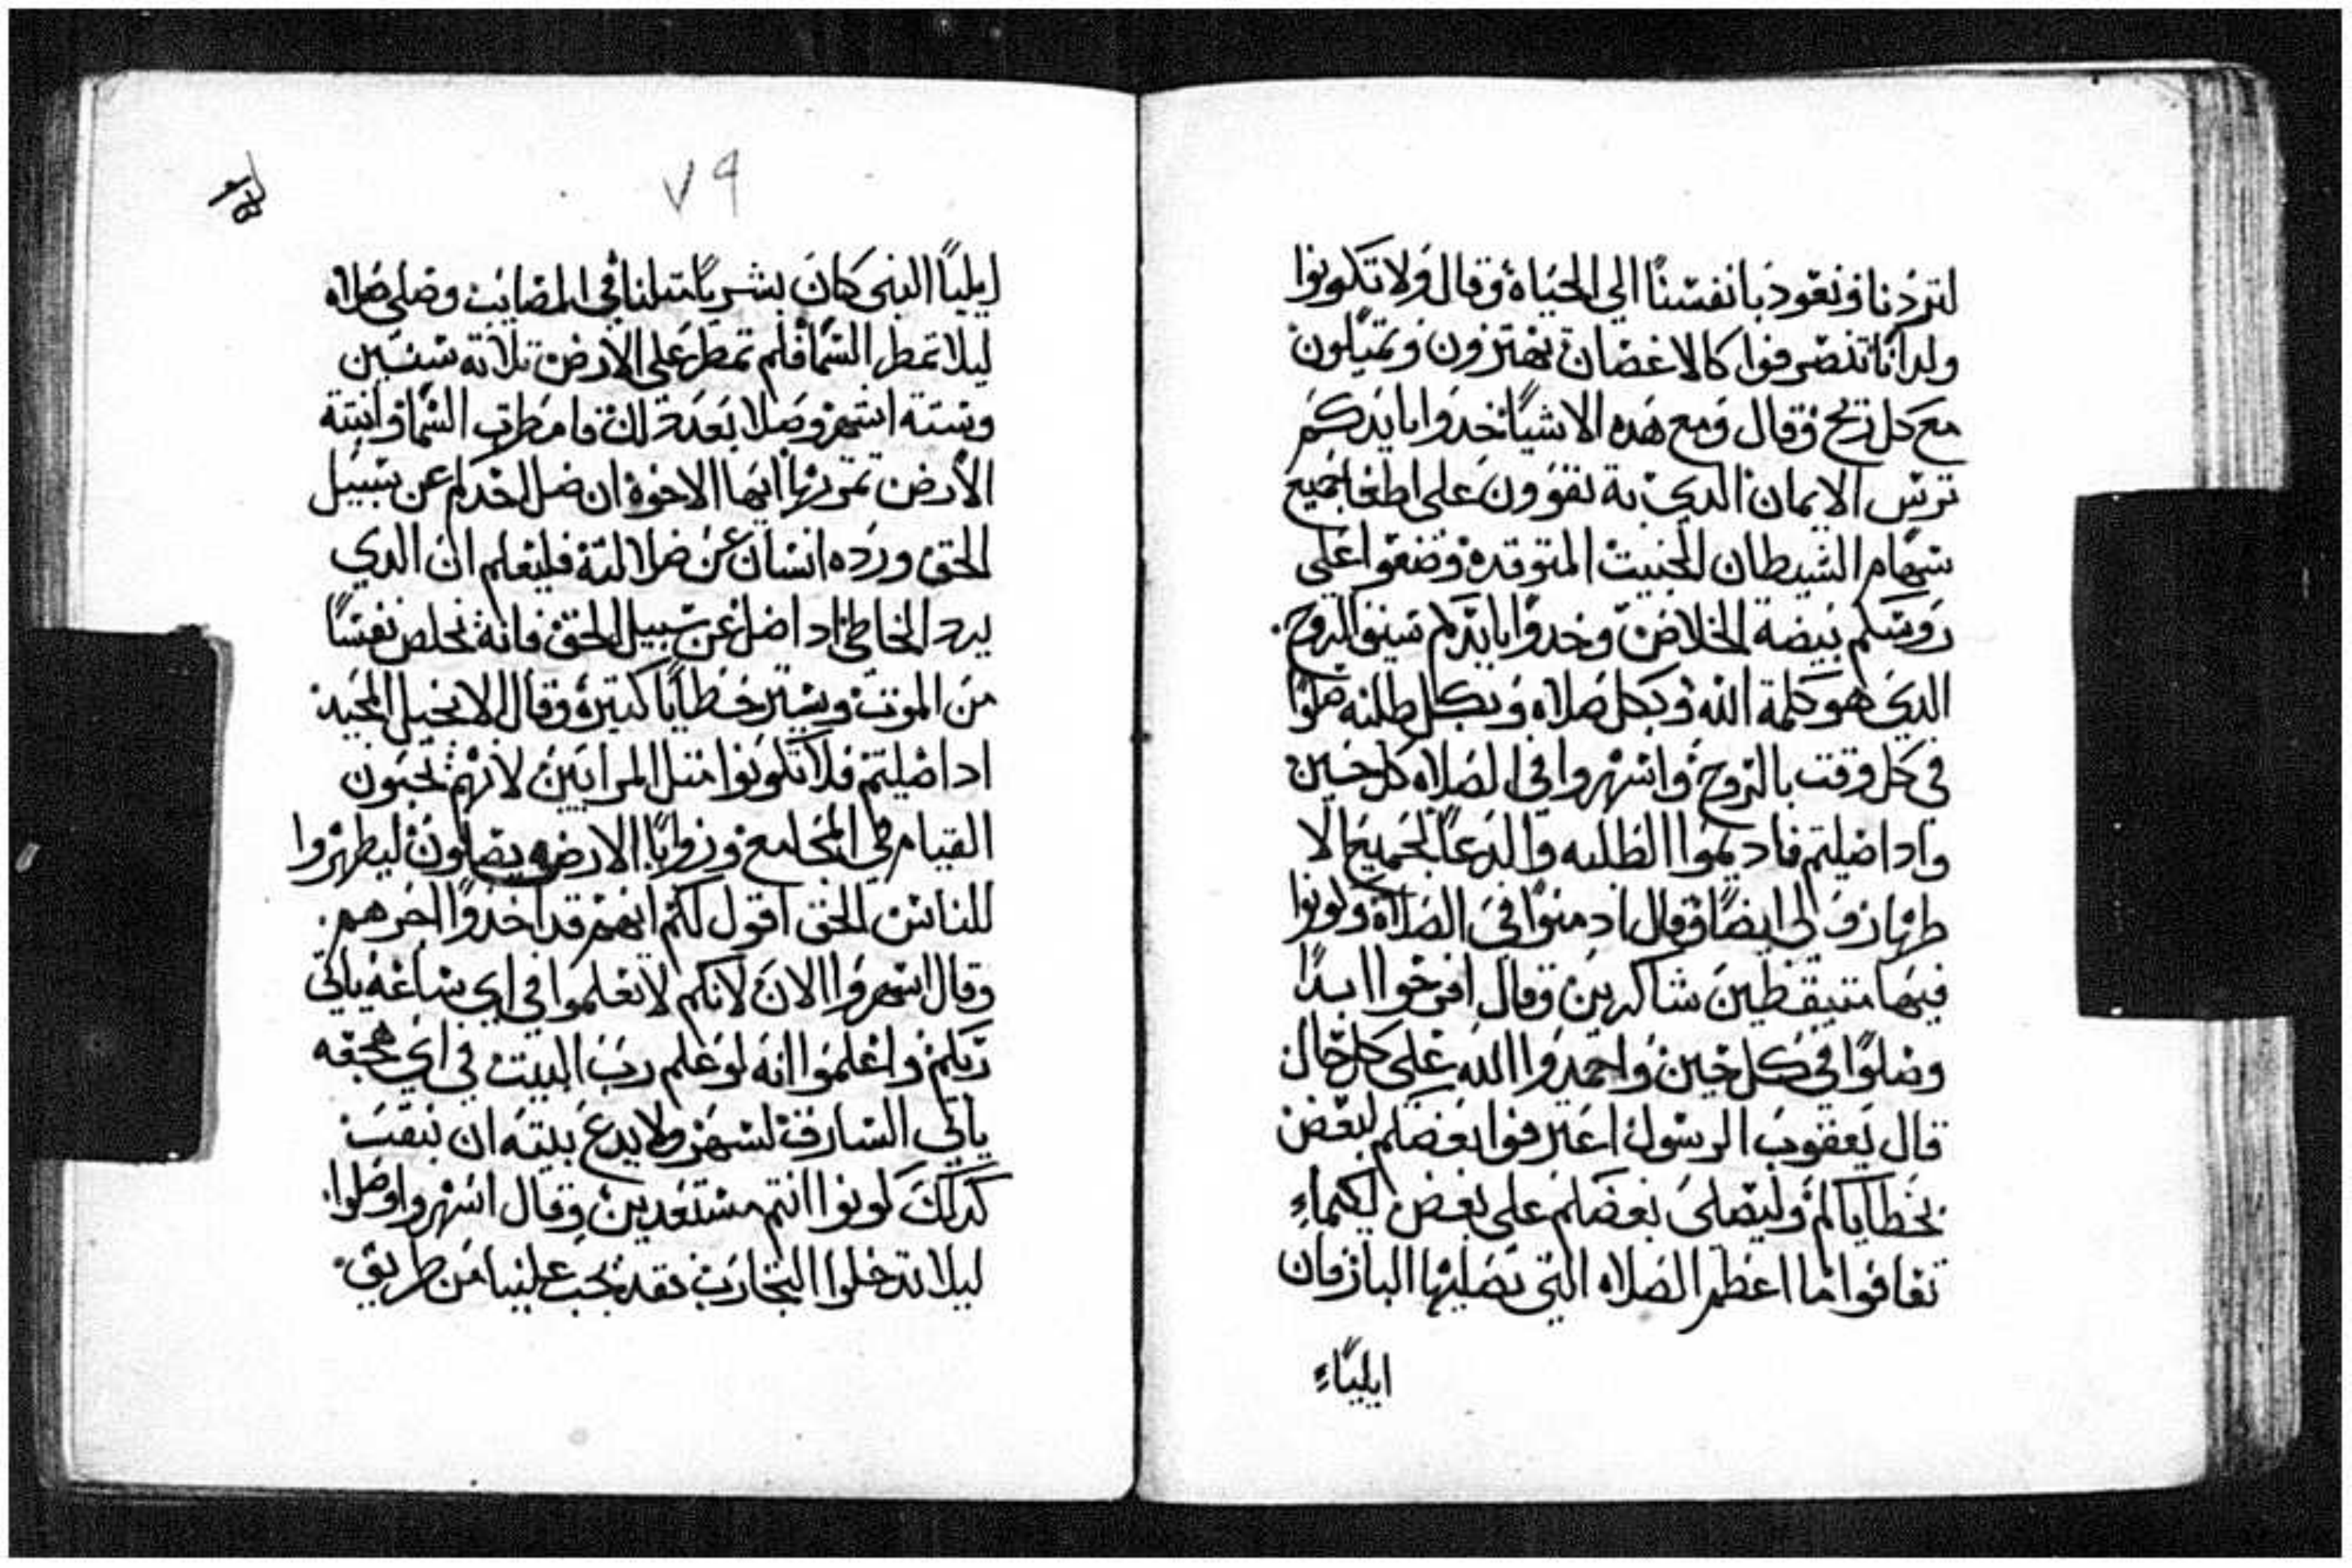 لتردنا ونعود بانفسنا الي الحياه وقال ولا تكونوا
ولدانا تنصرفوا كالاغصان تهتزون وتميلون
مع كل ريح وقال ومع هده الاشيا خدوا بايدكم
ترس الايمان الدي به تقوون علي اطفا جميع
سهام الشيطان الخبيت المتوقده وضعوا علي
روسكم بيضة الخلاص وخدوا بايدكم سيف الروح.
الدي هو كلمة الله وبكل صلاه وبكل طلبه صلوا
في كل وقت بالروح واسهروا في الصلاه كل حين
وادا صليتم فاديموا الطلبه والدعا لجميع الا
طهار ولي ايضا وقال ادمنوا في الصلاه وكونوا
فيها متيقظين شاكرين وقال افرحوا ابدا
وصلوا في كل حين واحمدوا الله علي كل حال
قال يعقوب الرسول اعترفوا بعضكم لبعض
بخطاياكم وليصلي بعضكم علي بعض لكيماء
تعافوا ما اعظم الصلاه التي يصليها البار فان
ايلياء
٧٩
ايليا النبي كان بشريا متلنا في المصايب وصلي صلاه
ليلا تمطر السما فلم تمطر علي الارض تلاته سنين
وستة اشهر وصلا بعد دلك فامطرت السما وانبتة
الارض تمرتها ايها الاخوه ان ضل احدكم عن سبيل
الحق ورده انسان عن ضلالته فليعلم ان الدي
يرد الخاطي ادا ضل عن سبيل الحق فانه يخلص نفسا
من الموت ويستر خطايا كتيره وقال الانجيل المجيد
ادا صليتم فلا تكونوا متل المرايين لانهم يحبون
القيام في المجامع وزوايا الارض يصلون ليظهروا
للناس الحق اقول لكم انهم قد اخدوا اجرهم.
وقال اسهروا الان لانكم لا تعلموا في اي ساعه ياتي
ربكم واعلموا انه لو علم رب البيت في اي هجعه
ياتي السارق لسهر ولا يدع بيته ان ينقب
كدلك كونوا انتم مستعدين وقال اسهروا وصلوا.
ليلا تدخلوا التجارب فقد يجب علينا من طريق